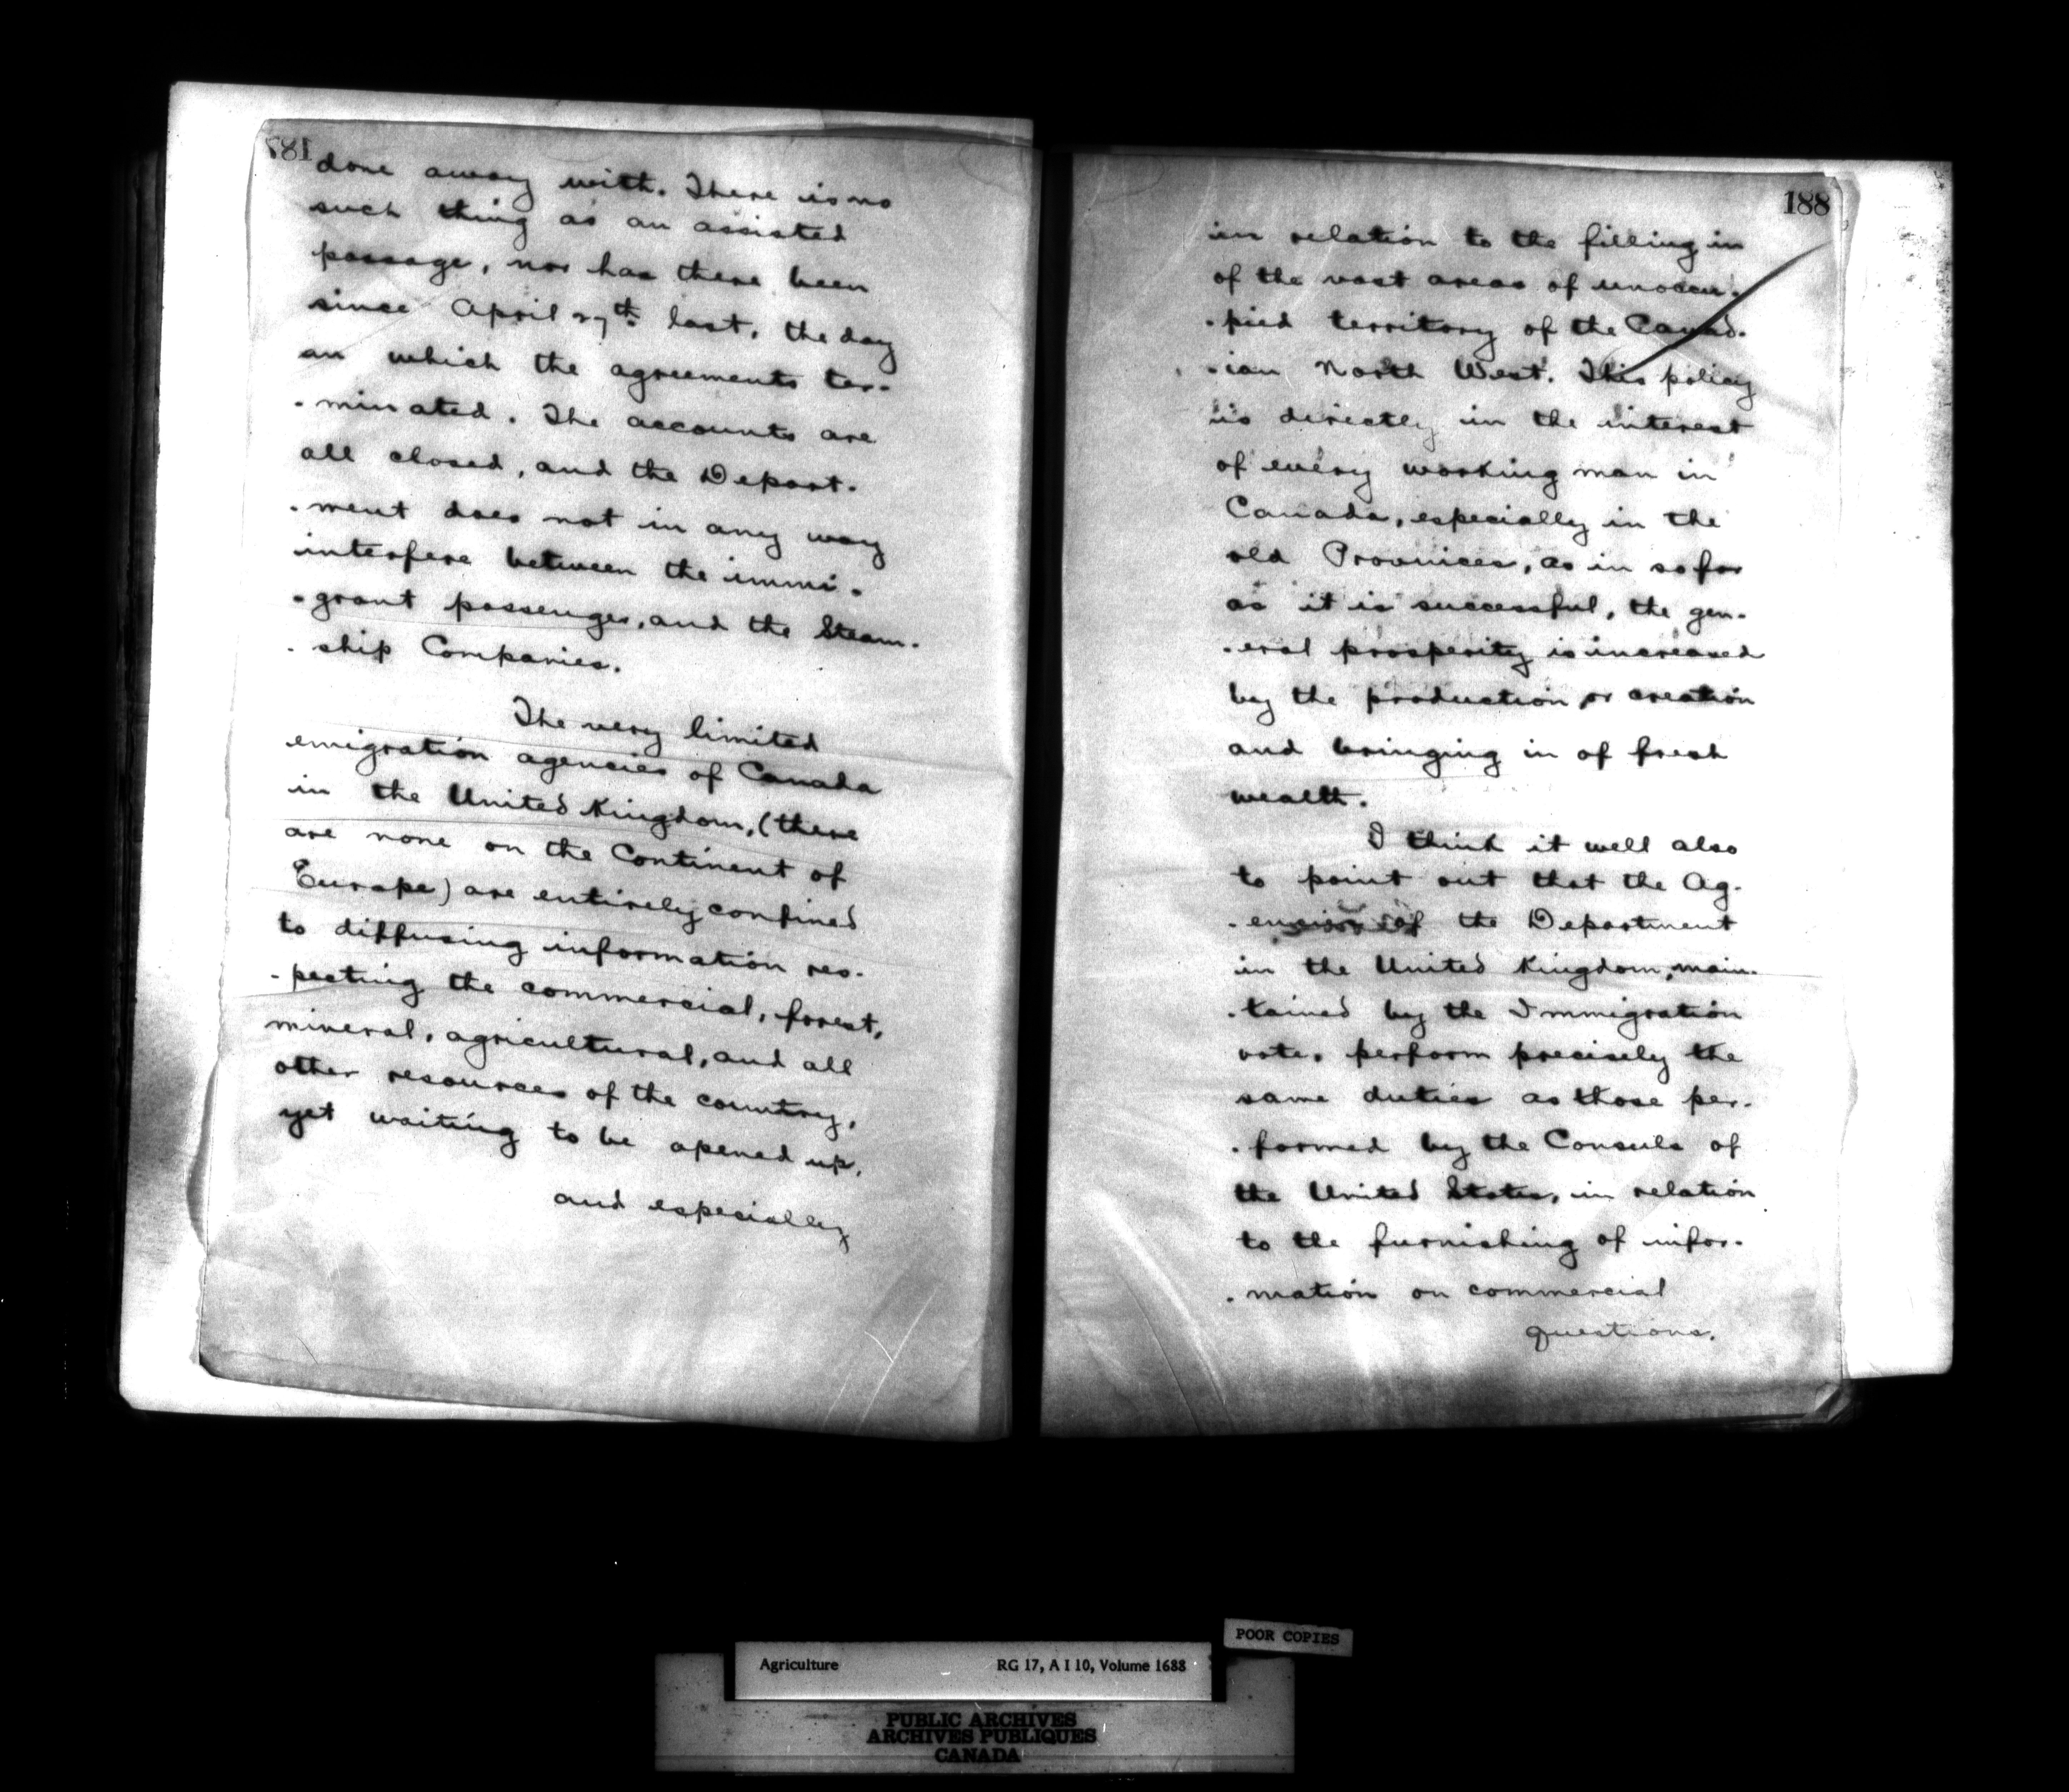 187
done away with. There is no
such thing as an assisted
passage, nor has there been
since April 27th last, the day
on which the agreements ter-
-minated. The accounts are
all closed, and the Depart-
-ment does not in any way
interfere between the immi-
-grant passenger, and the Steam-
-ship Companies.
The very limited
emigration agencies of Canada
in the United Kingdom, (there
are none on the Continent of
Europe) are entirely confined
to diffusing information res-
-pecting the commercial, forest,
mineral, agricultural, and all
other resources of the country,
yet waiting to be opened up,
and especially
188
in relation to the filling in
of the vast areas of unoccu-
-pied territory of the Canad-
-ian North West. This policy
is directly in the interest
of every working man in
Canada, especially in the
old Provinces, as in so far
as it is successful, the gen-
-eral prosperity is increased
by the production or creation
and bringing in of fresh
wealth.
I think it well also
to point out that the Ag-
-encies of the Department
in the United Kingdom, main-
-tained by the Immigration
vote, perform precisely the
same duties as those per-
-formed by the Consuls of
the United States, in relation
to the furnishing of infor-
-mation on commercial
questions.
POOR COPIES
Agriculture RG 17, A I 10, Volume 1688
PUBLIC ARCHIVES
ARCHIVES PUBLIQUES
CANADA